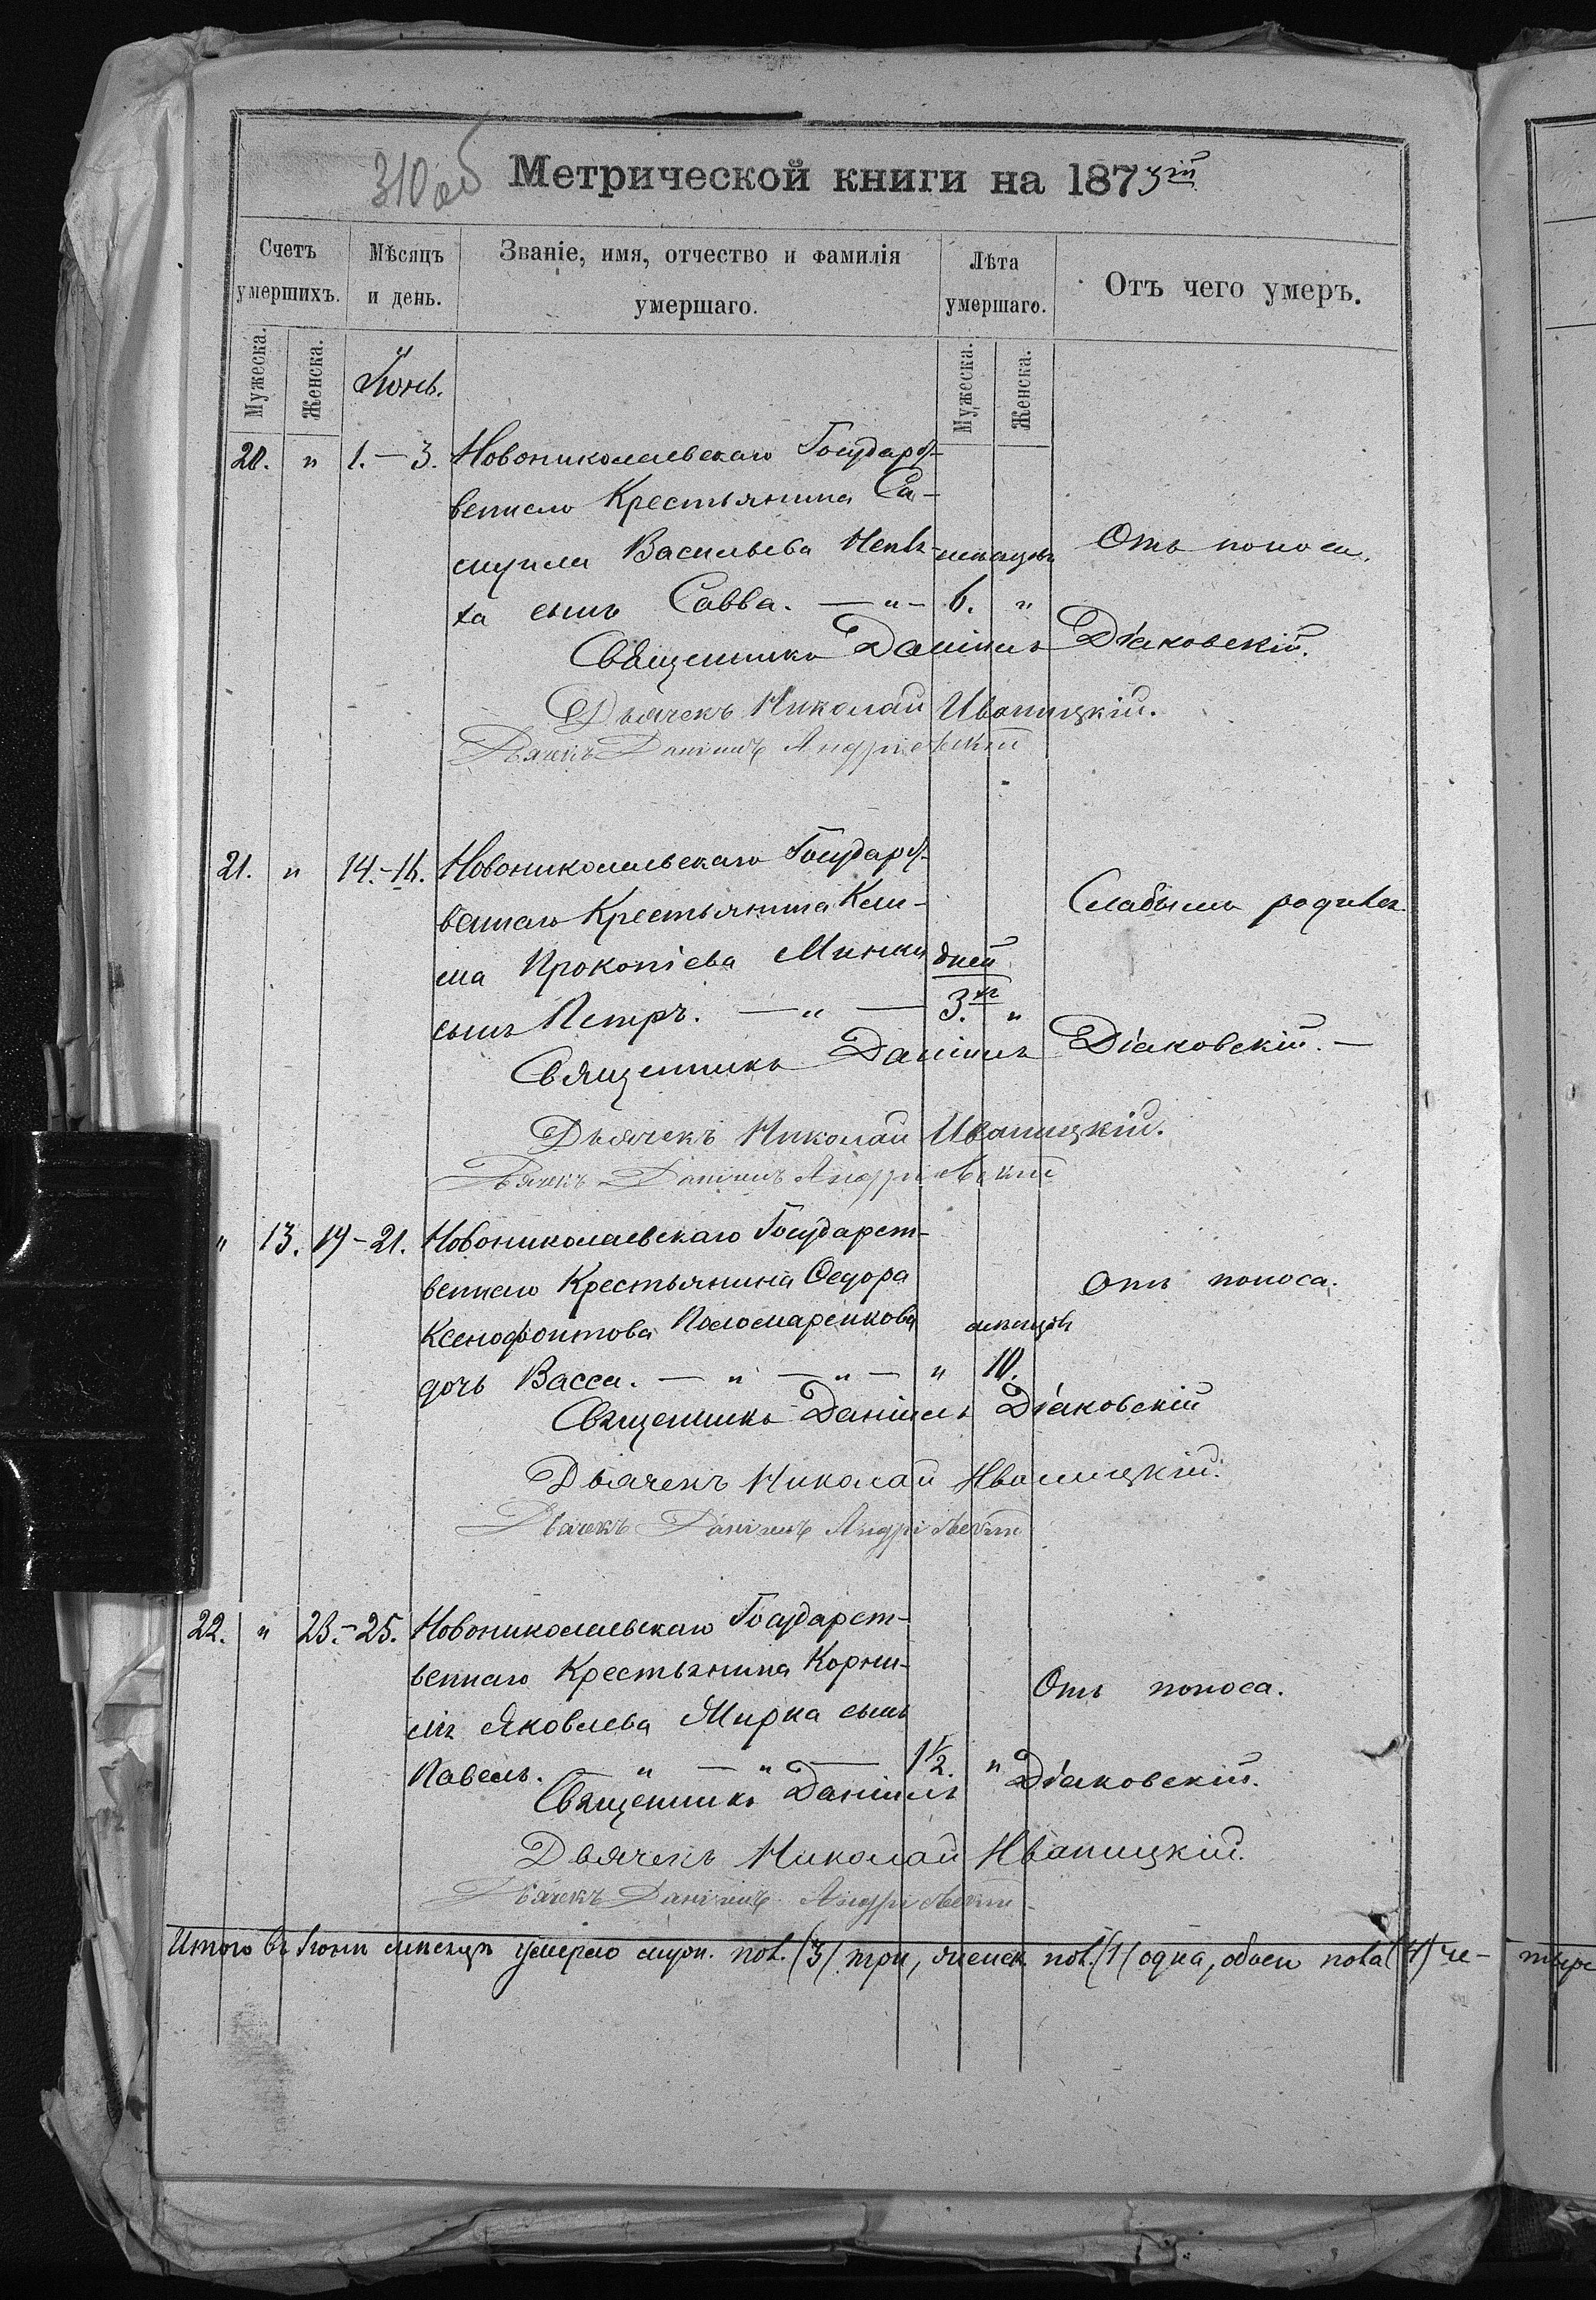 310 об
Метрической книги на 1873ій
Счетъ умершихъ.
Мѣсяцъ и день.
Званіе, имя, отчество и фамилія умершаго.
Лѣта умершаго.
Отъ чего умеръ.
Мужеска.
Женска.
Мужеска.
Женска.
Іюнь.
20. " 1.-3. Новониколаевскаго Государст-
веннаго Крестьянина Са-
муила Васильева мѣсяцъ Отъ поноса.
ха сынъ Савва. — " — 6. "
Священникъ Даніилъ Діаковскій.
Дьячекъ Николай Иваницкій.
Дьячекъ Даніилъ Андріевскій
21. " 14.-16. Новониколаевскаго Государст-
веннаго Крестьянина Кли- Слабымъ родился
ма Прокопіева Минки дней
сынъ Петръ. — " — 3.хъ "
Священникъ Даніилъ Діаковскій. —
Дьячекъ Николай Иваницкій.
Дьячекъ Даніилъ Андріевскій
" 13. 19-21. Новониколаевскаго Государст-
веннаго Крестьянина Ѳедора Отъ поноса.
Ксенофонтова Поломаренкова мѣсяцъ
дочь Васса. — " — " — " 10.
Священникъ Даніилъ Діаковскій
Дьячекъ Николай Иваницкій.
Дьячекъ Даніилъ Андріевскій
22. " 23.-25. Новониколаевскаго Государст-
веннаго Крестьянина Корни- Отъ поноса.
лія Яковлева Мирка сынъ
Павелъ. — " — " — 1½. "
Священникъ Даніилъ Діаковскій.
Дьячекъ Николай Иваницкій.
Дьячекъ Даніилъ Андріевскій
Итого въ Іюнѣ мѣсяцѣ умерло муж. пол. (3) три, женск. пол. (1) одна, обоего пола (4) че- тыре